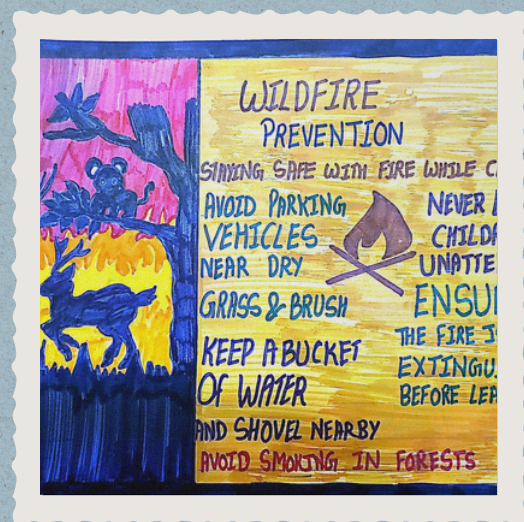 WILDFIRE
PREVENTION
STAYING SAFE WITH FIRE WHILE C
AVOID PARKING
VEHICLES
NEAR DRY
GRASS & BRUSH
KEEP A BUCKET
OF WATER
AND SHOVEL NEARBY
AVOID SMOKING IN FORESTS
NEVER
CHILD
UNATTE
ENSU
THE FIRE
EXTINGU
BEFORE LEA